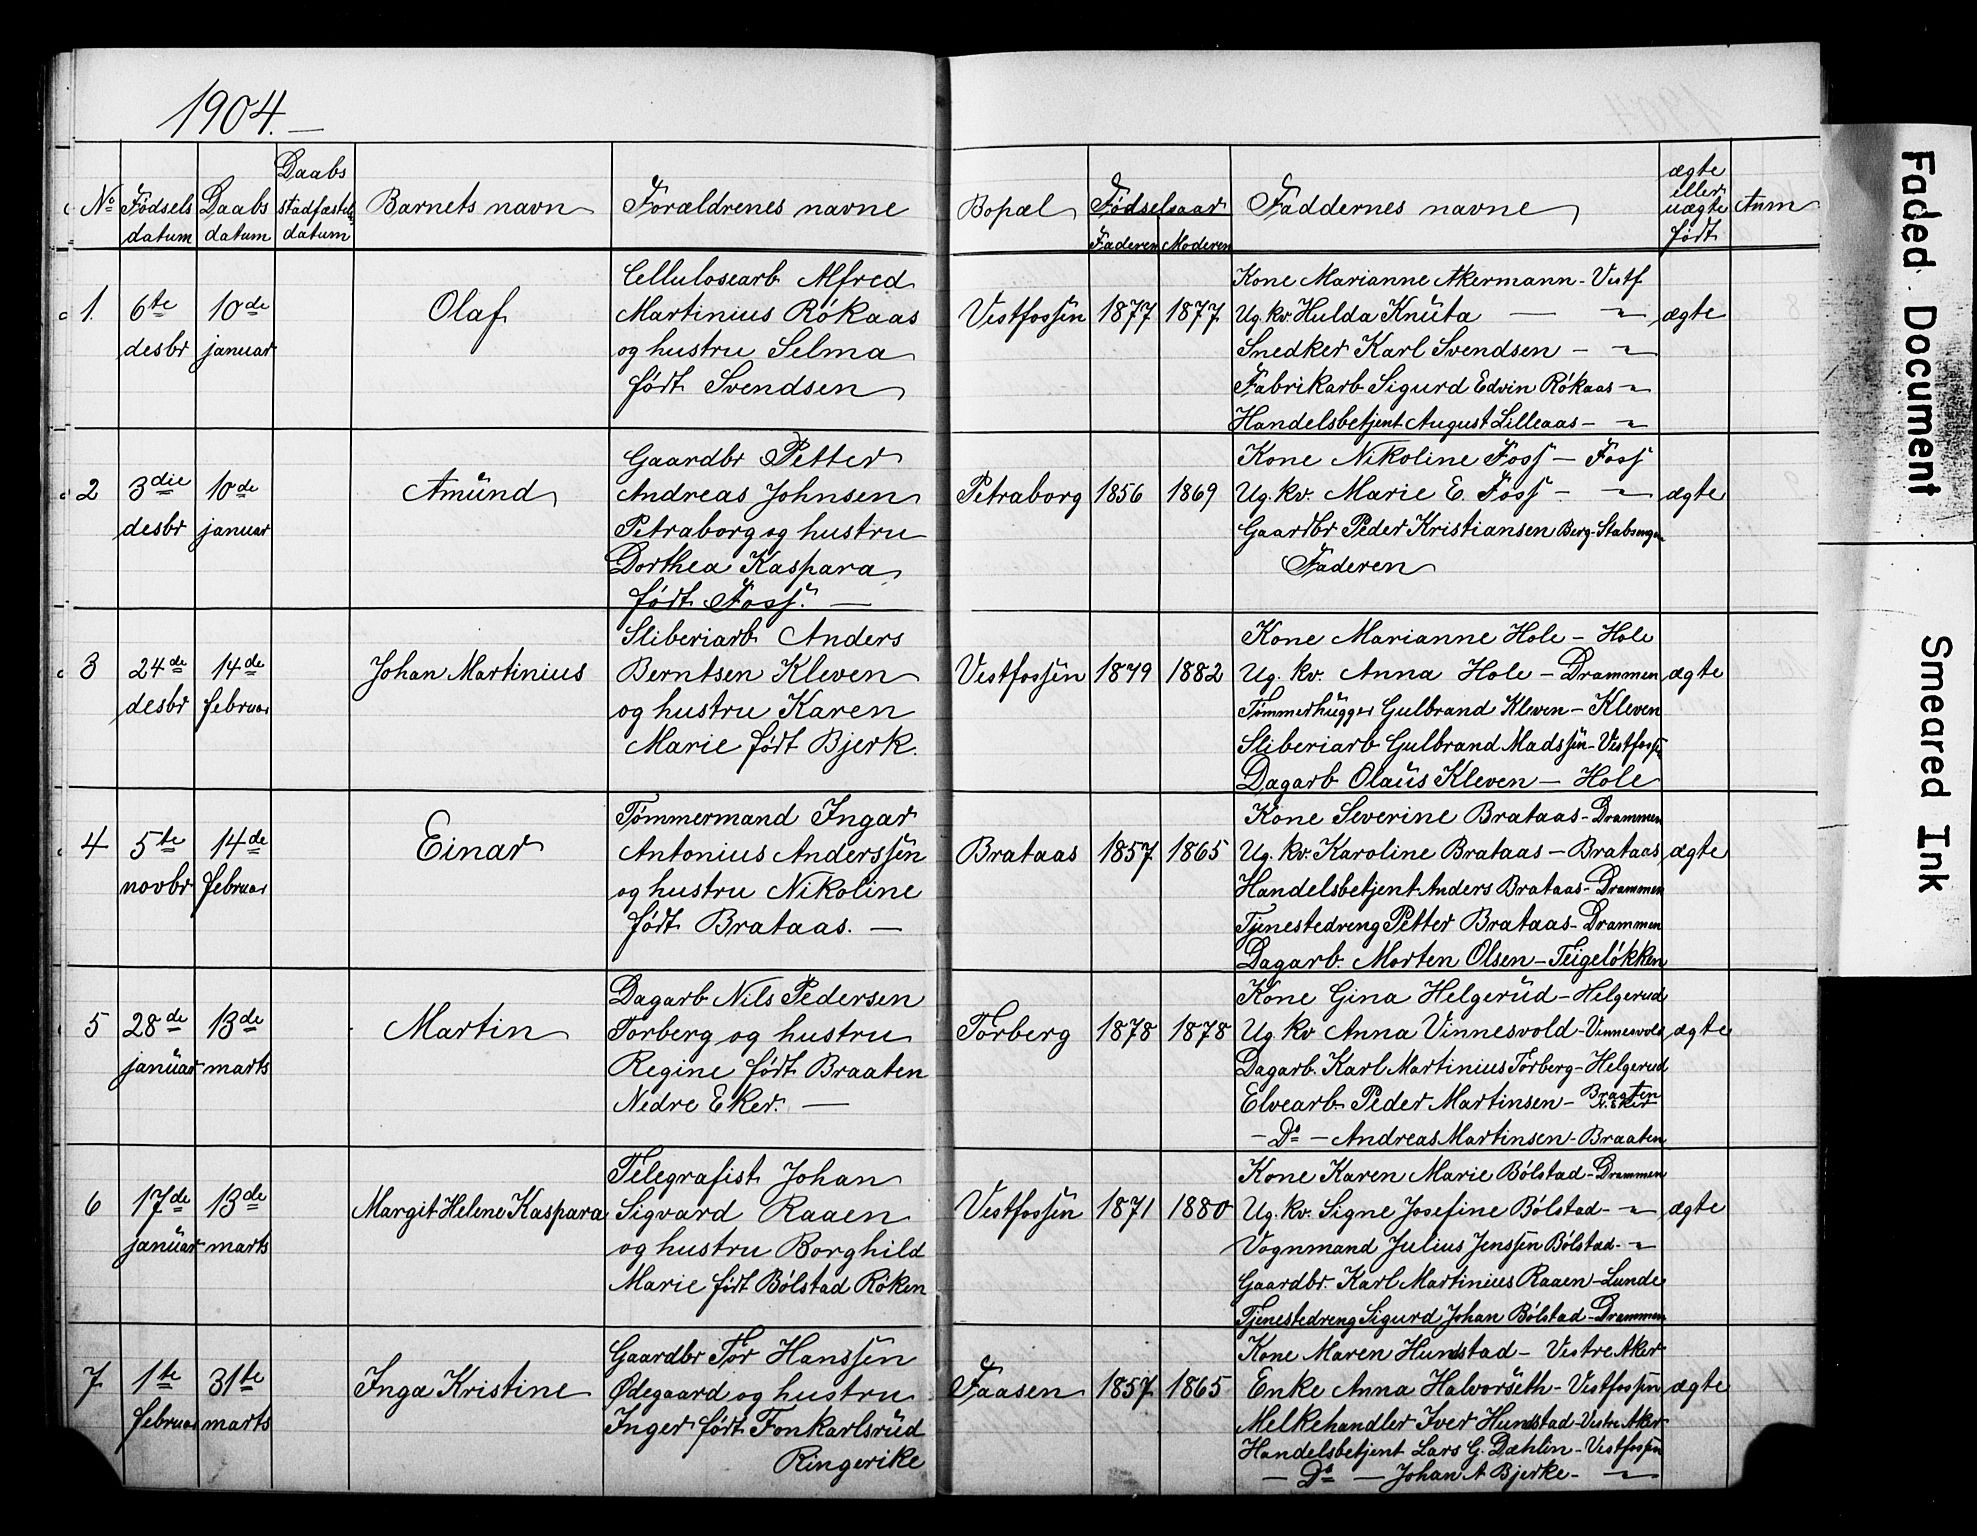 1904.—
№ Fødsels datum Daabs datum Daabs stadfæstels datum Barnets navn Forældrenes navne Bopæl Fødselsaar Faderen Moderen Faddernes navne ægte eller uægte født Anm
1. 6te desbr 10de januar Olaf
Cellulosearb Alfred
Martinius Rökaas
og hustru Selma
født Svendsen
Vestfossen 1877 1877
Kone Marianne Akermann - Vestf
Ug. kv. Hulda Knüta — „
Snedker Karl Svendsen - „
Fabrikarb Sigurd Edvin Rökaas - „
Handelsbetjent August Lilleaas - „
ægte
2 3die desbr 10de januar Amünd
Gaardbr Petter
Andreas Johnsen
Petraborg og hustru
Dorthea Kaspara
født Foss. —
Petraborg 1856 1869
Kone Nikoline Foss - Foss
Ug. kv. Marie E. Foss - „
Gaardbr Peder Kristiansen Berg-
Faderen
ægte
3 24de desbr 14de februar Johan Martinius
Sliberiarb Anders
Berntsen Kleven
og hustru Karen
Marie født Bjerk.
Vestfossen 1879 1882
Kone Marianne Hole - Hole
Ug. kv. Anna Hole - Drammen
Tømmerhugger Gulbrand Kleven - Kleven
Sliberiarb Gulbrand Madssen - Vestfossen
Dagarb Olaüs Kleven - Hole
ægte
4 5te novbr 14de februar Einar
Tømmermand Ingar
Antonius Anderssen
og hustru Nikoline
født Brataas. —
Brataas 1857 1865
Kone Severine Brataas - Drammen
Ug. kv. Karoline Brataas - Brataas
Handelsbetjent Anders Brataas - Drammen
Tjenestedreng Petter Brataas - Drammen
Dagarb. Morten Olsen - Teigeløkken
ægte
5 28de janüar 13de marts Martin
Dagarb Nils Pedersen
Torberg og hustru
Regine født Braaten
Nedre Eker. —
Torberg 1878 1878
Kone Gina Helgerüd - Helgerud
Ug. kv Anna Vinnesvold - Vinnesvold
Dagarb. Karl Martinius Torberg - Helgerud
Elvearb Peder Martinsen - Braaten N. Eker
— Do — Andreas Martinsen - Braaten
ægte
6 17de janüar 13de marts Margit Helene Kaspara
Telegrafist Johan
Sigvard Raaen
og hustru Borghild
Marie født Bølstad Røken
Vestfossen 1871 1880
Kone Karen Marie Bølstad - Drammen
Ug. kv. Signe Josefine Bølstad - „
Vognmand Julius Jenssen Bølstad - „
Gaardbr. Karl Martinius Raaen - Lunde
Tjenestedreng Sigurd Johan Bølstad - Drammen
ægte
7 1te februar 31te marts Inga Kristine
Gaardbr Tor Hanssen
Ødegaard og hustru
Inger født Fonkarlsrüd
Ringerike
Faasen 1857 1865
Kone Maren Hundstad - Vestre Aker
Enke Anna Halvorseth - Vestfossen
Melkehandler Iver Hundstad - Vestre Aker
Handelsbetjent Lars G. Dæhlin - Vestfossen
— Do — Johan A Bjerke - „
ægte
Faded Document
Smeared Ink